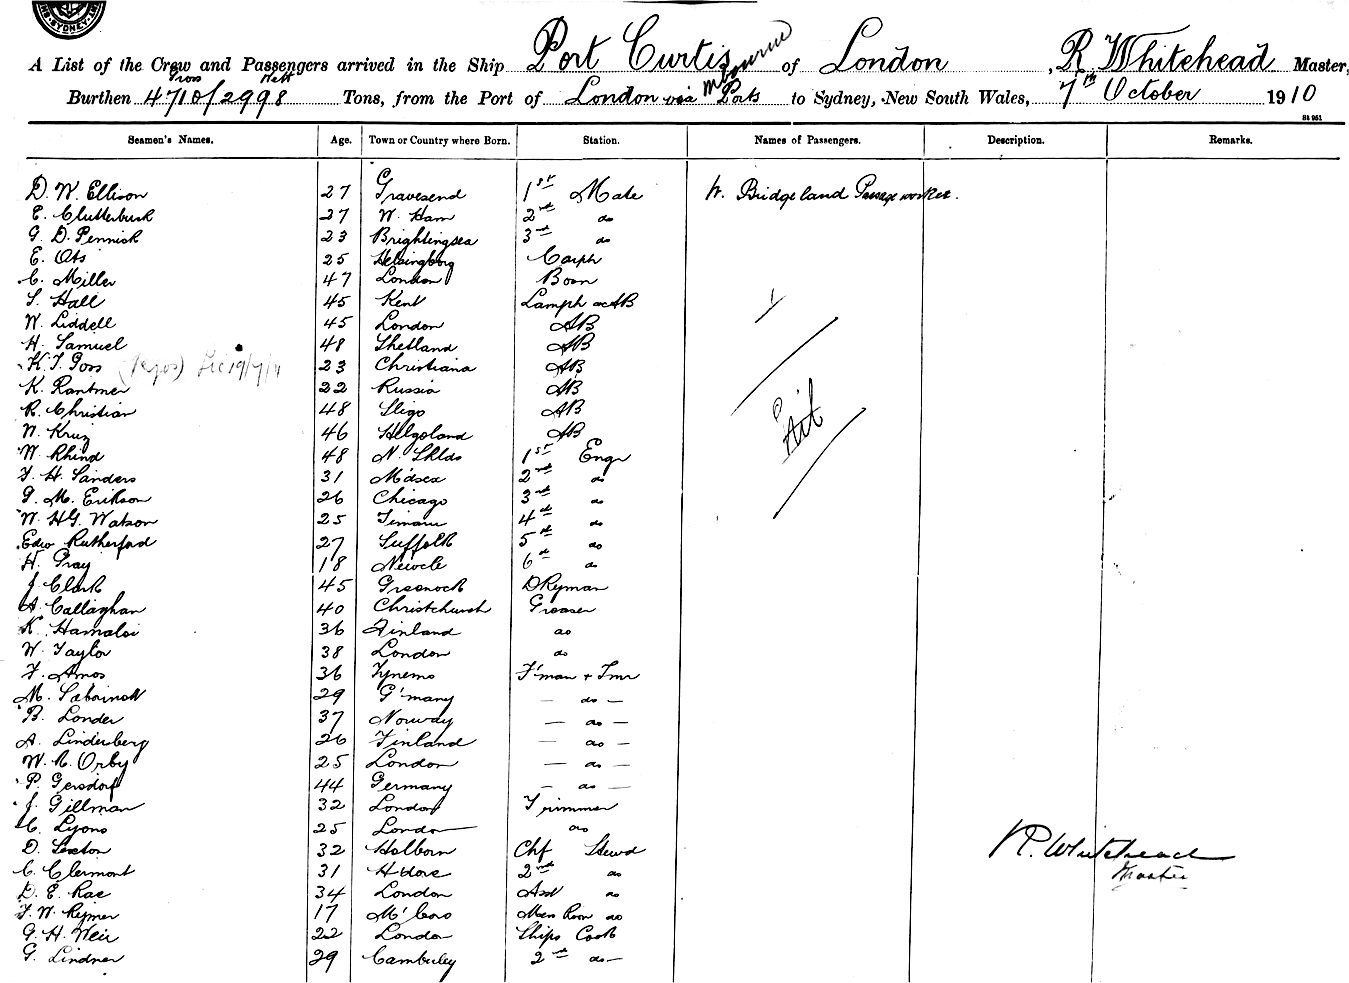 SYDNEY
A List of the Crew and Passengers arrived in the Ship Port Curtis of London, R Whitehead Master,
Gross Nett Melbourne
Burthen 4710/2998 Tons, from the Port of London via Ports to Sydney, New South Wales, 7th October 1910
Seamen's Names. Age. Town or Country where Born. Station. Names of Passengers. Description. Remarks.
D. W. Ellison 27 Gravesend 1st Mate W. Bridgeland Passage worker.
E. Clutterbuck 27 W. Ham 2nd do
G. D. Pennick 23 Brightlingsea 3rd do
E. Ots 25 Helsingborg Carp
C. Miller 47 London Bosn
S. Hall 45 Kent Lamp & AB
W. Liddell 45 London AB
H. Samuel 48 Shetland AB
K. T. Goss 23 Christiana AB
K. Rantmer 22 Russia AB
R. Christian 48 Sligo AB
N. Krug 46 Helgoland AB
W. Rhind 48 N. Shlds 1st Engr
F. H. Sanders 31 M'dsex 2nd do
G. M. Erikson 26 Chicago 3rd do
W. HG. Watson 25 Timaru 4th do
Edw Rutherford 27 Suffolk 5th do
H. Gray 18 Newcle 6th do
J. Clark 45 Greenock DKyman
A. Callaghan 40 Christchurch Greaser
K. Hamaloi 36 Finland do
W. Taylor 38 London do
F. Amos 36 Tynemo F'man & Tmr
M. 29 G'many — do —
B. Londer 37 Norway — do —
A. Lindersberg 26 Finland — do —
W. A. Orby 25 London — do —
P. Gersdorf 44 Germany — do —
J. Gillman 32 London Trimmer
C. Lyons 25 London do
D. Sexton 32 Holborn Chf Stewd
C. Clermont 31 2nd do
D. E. Rae 34 London Asst do
F. W. Rymer 17 M'boro Mess Room do
G. H. Weir 22 London Ships Cook
G. Lindner 29 Camberley 2nd do —
R. Whitehead
Master